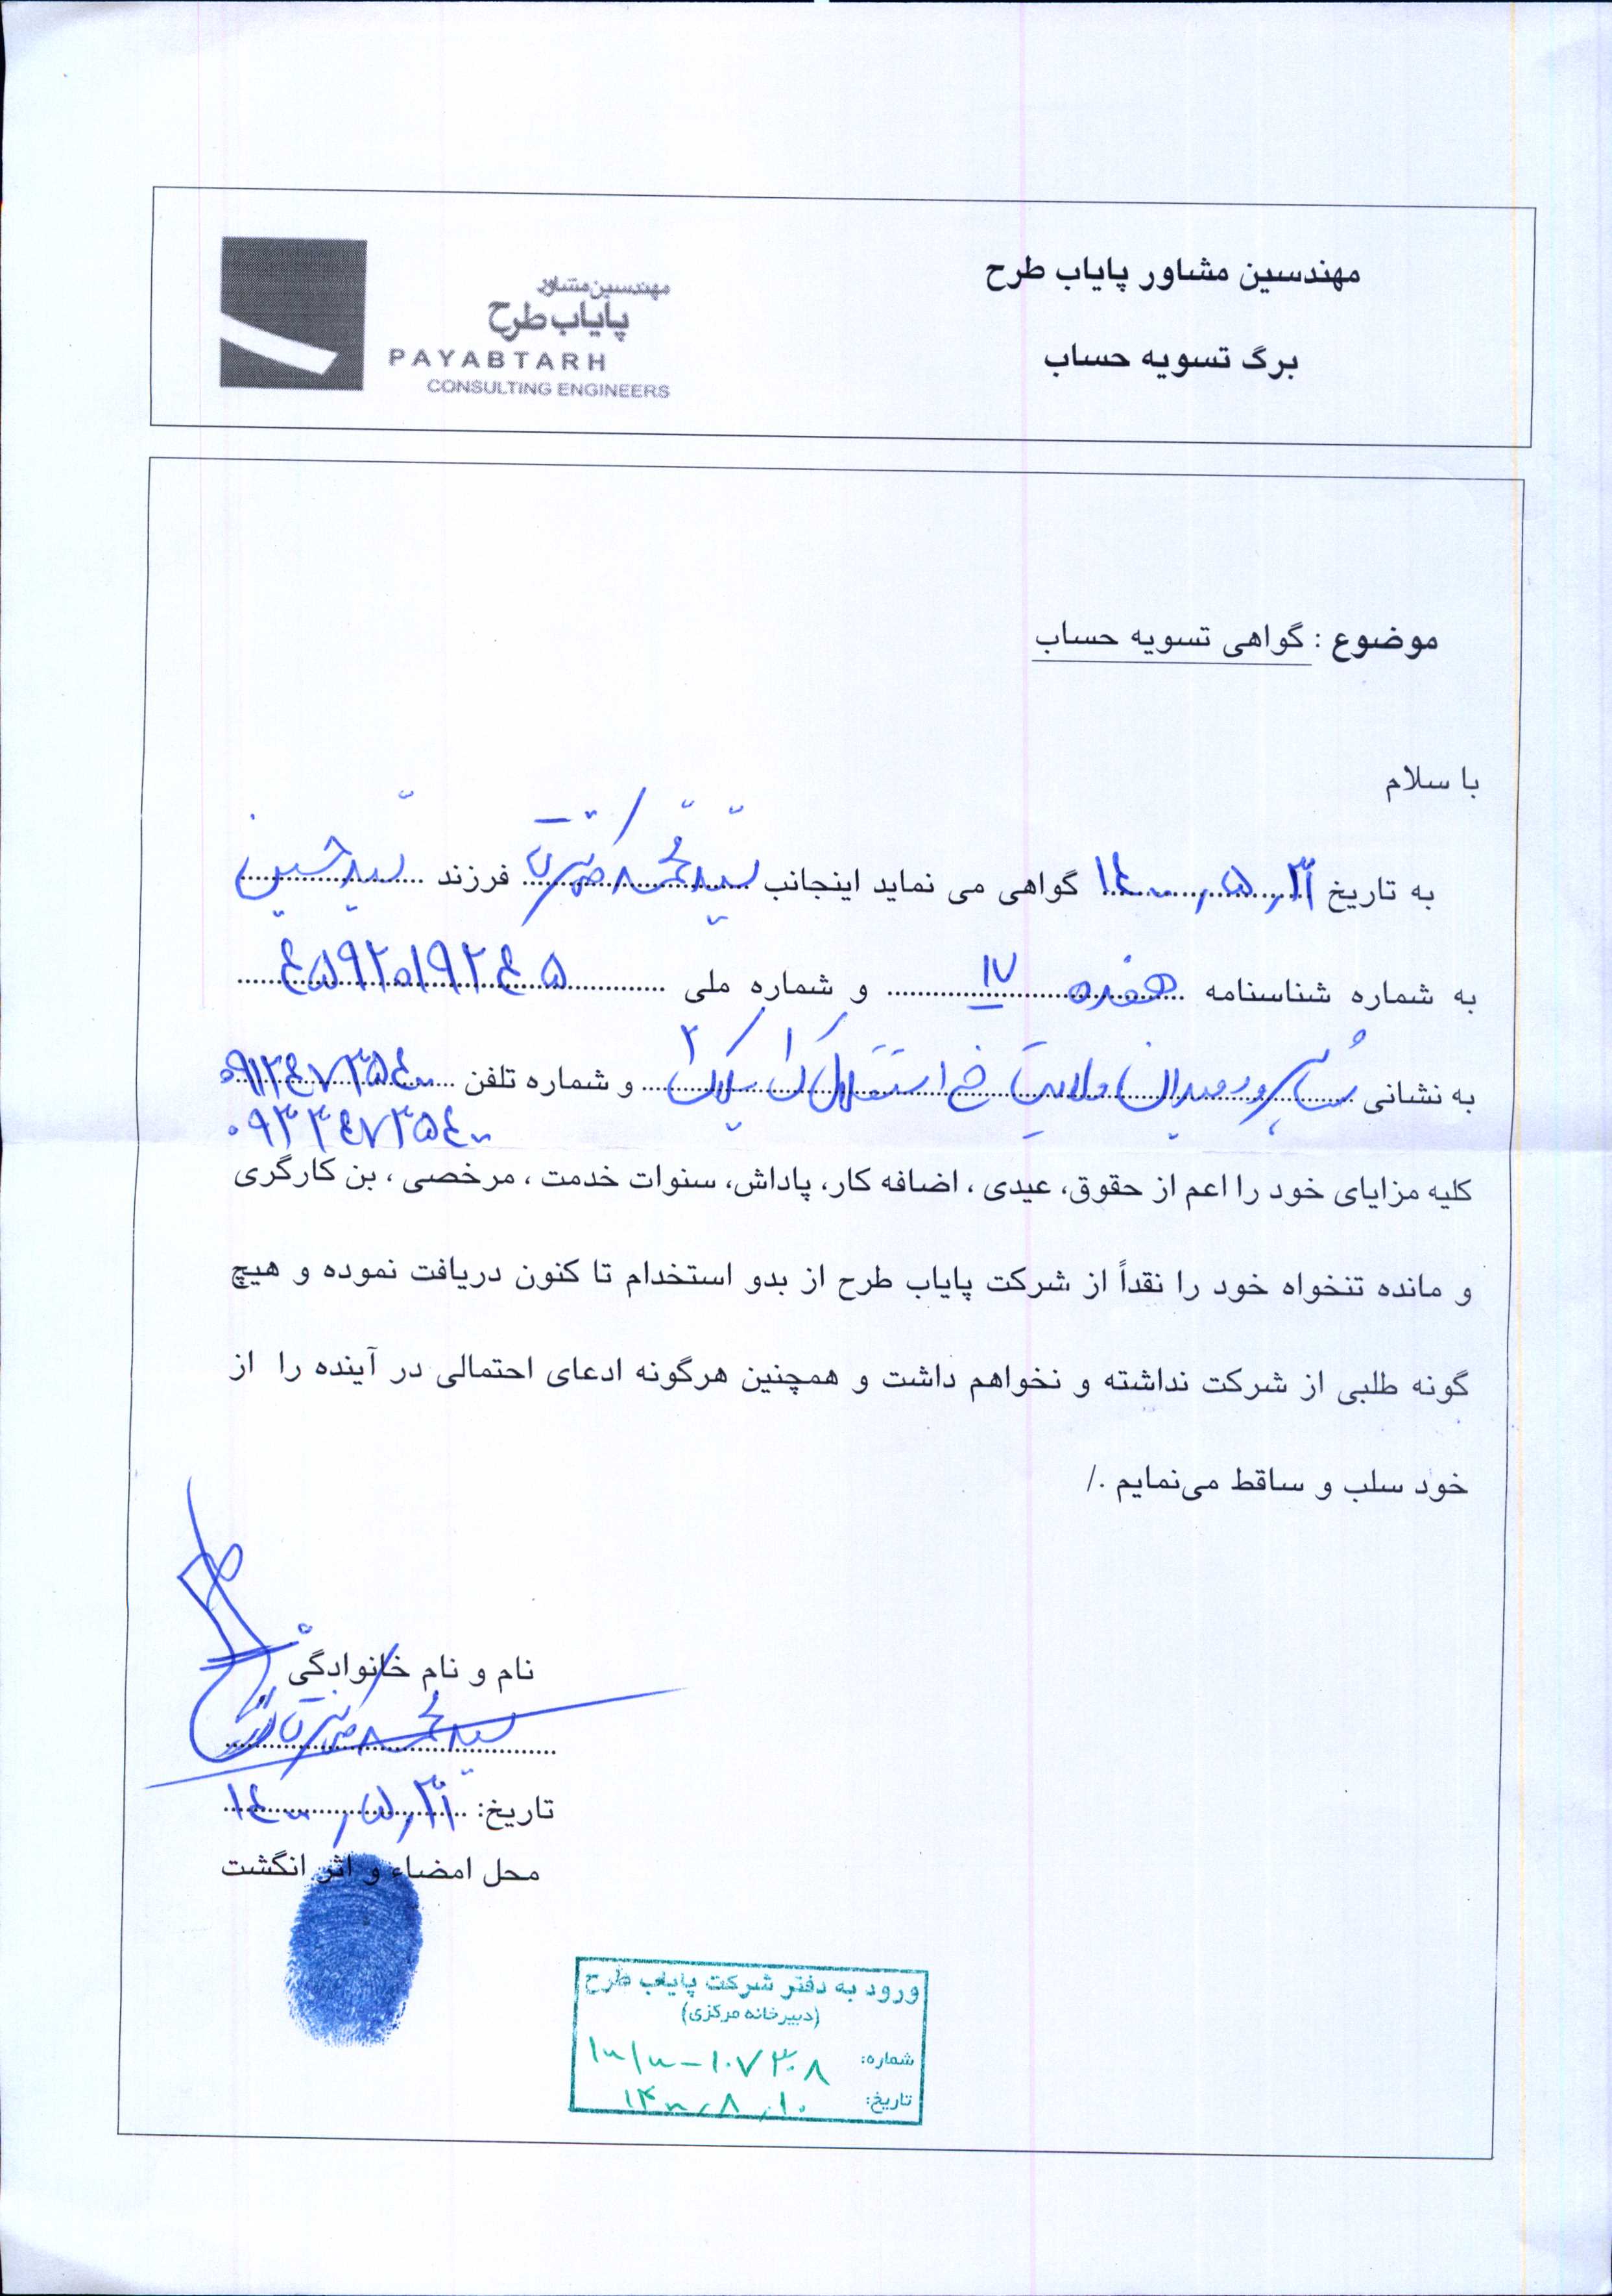 مهندسین مشاور پایاب طرح
برگ تسویه حساب
مهندسین مشاور
پایاب طرح
PAYABTARH
CONSULTING ENGINEERS
موضوع : گواهی تسویه حساب
با سلام
به تاریخ ۱۴۰۰,۵,۳۱ گواهی می نماید اینجانب سید محمد فرزند سید حسین
به شماره شناسنامه هفده ۱۷ و شماره ملی ۴۵۹۲۰۱۹۲۴۵
به نشانی میدان ولایت خ استقلال ۲ و شماره تلفن ۰۹۱۲۴۷۳۵۴۰۰
۰۹۳۳۴۷۳۵۴۰۰
کلیه مزایای خود را اعم از حقوق، عیدی ، اضافه کار، پاداش، سنوات خدمت ، مرخصی ، بن کارگری
و مانده تنخواه خود را نقداً از شرکت پایاب طرح از بدو استخدام تا کنون دریافت نموده و هیچ
گونه طلبی از شرکت نداشته و نخواهم داشت و همچنین هرگونه ادعای احتمالی در آینده را از
خود سلب و ساقط می‌نمایم ./
نام و نام خانوادگی
سید محمد
تاریخ: ۱۴۰۰,۵,۳۱
محل امضاء و اثر انگشت
ورود به دفتر شرکت پایاب طرح
(دبیرخانه مرکزی)
شماره: ۱۰۷۳۰۸
تاریخ: ۱۴۰۰,۸,۱۰